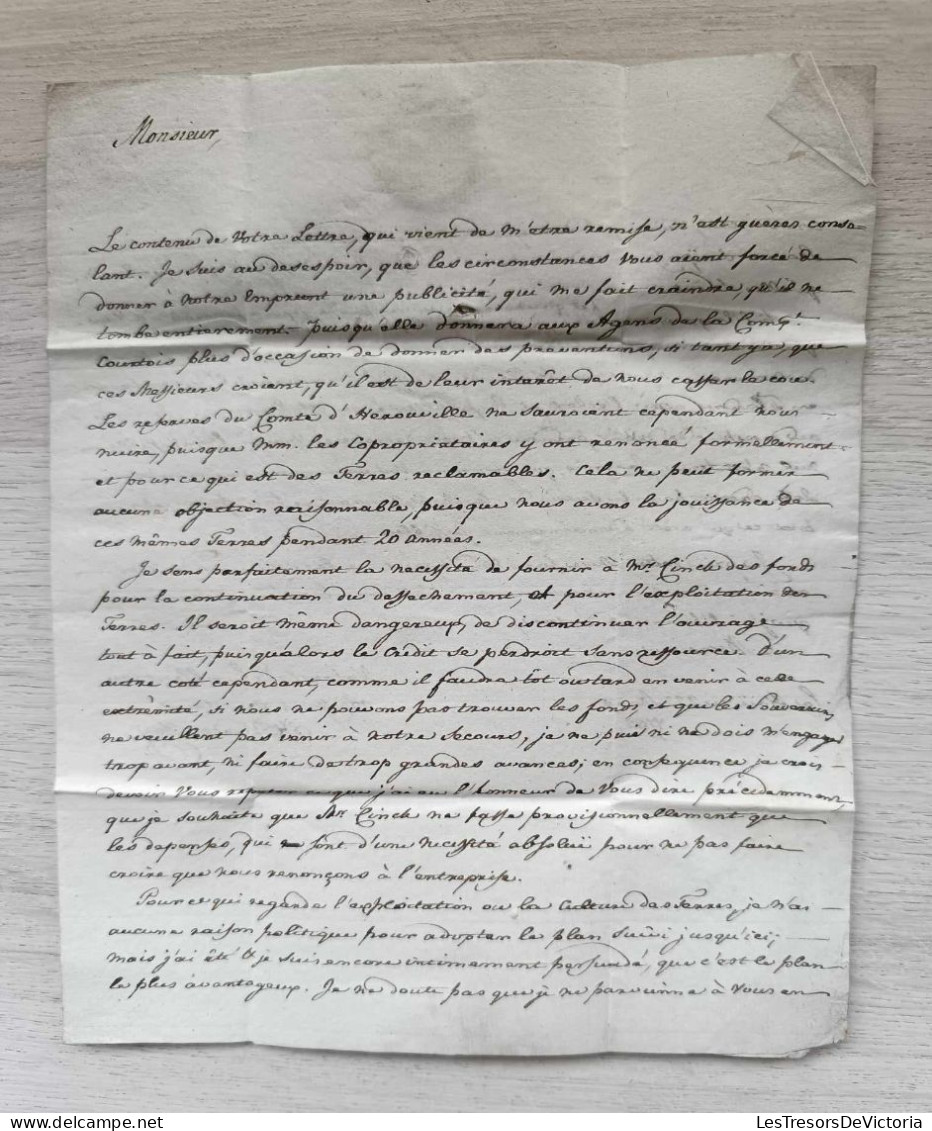 Monsieur,
Le contenu de Votre Lettre, qui vient de m'etre remise, n'est guères conso-
lant. Je suis au desespoir, que les circonstances Vous aïent forcé de
donner à Notre Emprunt une publicité, qui me fait craindre, qu'il ne
tombe entierement. puisqu'elle donnera aux Agens de la Comp.
Courtois plus d'occasion de donner des preventions, si tant y a, que
ces Messieurs croient, qu'il est de leur interêt de nous casser le cou.
Les reprises du Comte d'Herouville ne sauroient cependant nous
nuire, puisque mm. les Copropriétaires y ont renoncé formellement.
et pour ce qui est des Terres reclamables. Cela ne peut former
aucune objection raisonnable, puisque nous avons la jouissance de
ces mêmes Terres pendant 20 années.
Je sens parfaitement la necessité de fournir à Mr. Cinck des fonds
pour la continuation du dessechement, et pour l'exploitation des
Terres. Il seroit même dangereux, de discontinuer l'ouvrage
tout à fait, puisqu'alors le Crédit se perdroit sans ressource. D'un
autre coté cependant, comme il faudra tôt ou tard en venir à cette
extrêmité, si nous ne pouvons pas trouver les fonds, et que les Souverains
ne veuillent pas venir à notre secours, je ne puis ni ne dois m'engager
trop avant, ni faire de trop grandes avances; en consequence je crois
devoir Vous repeter ce que j'ai eu l'honneur de Vous dire précédemment,
que je souhaite que Mr. Cinck ne fasse provisionnellement que
les depenses, qui sont d'une necessité absolüe pour ne pas faire
croire que nous renonçons à l'entreprise.
Pour ce qui regarde l'exploitation ou la Culture des Terres, je n'ai
aucune raison politique pour adopter le plan suivi jusqu'ici;
mais j'ai été & je suis encore intimement persuadé, que c'est le plan
le plus avantageux. Je ne doute pas que je ne parvienne à Vous en
LesTresorsDeVictoria@delcampe.net